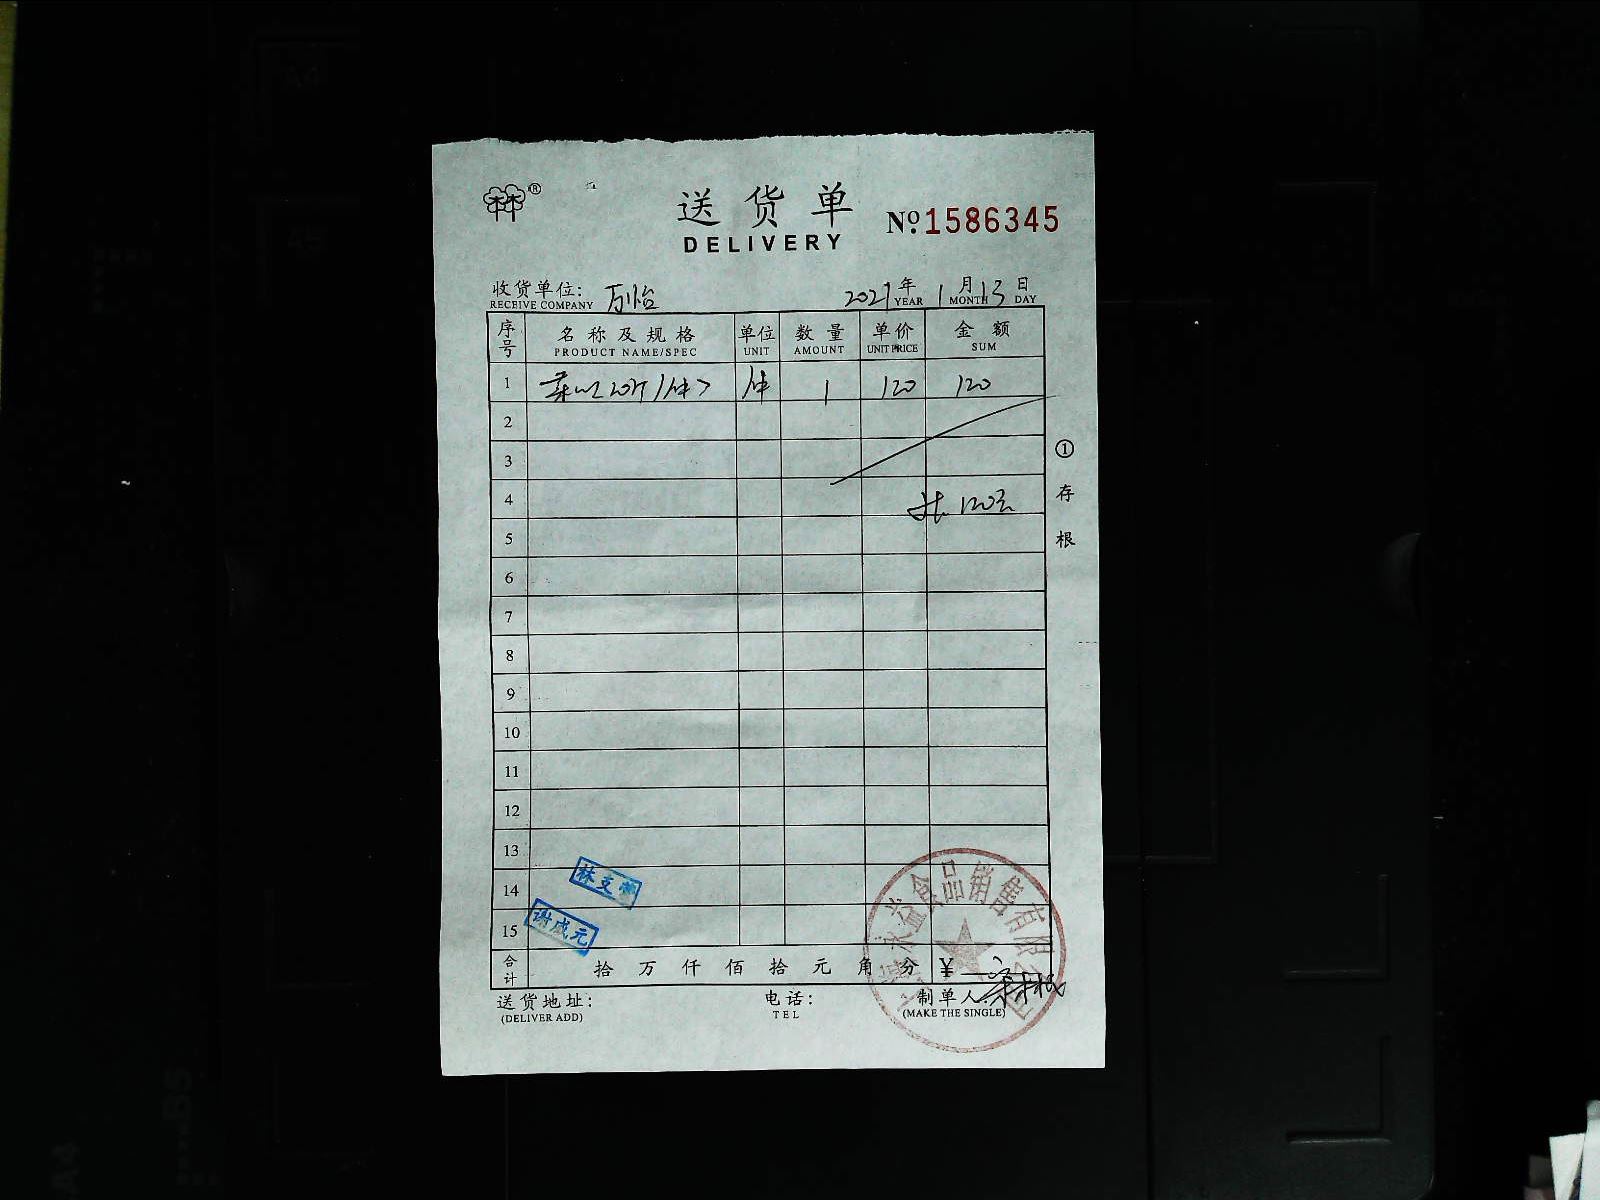 林®
送货单
DELIVERY
No. 1586345
收货单位: 万怡
RECEIVE COMPANY
2021年1月13日
YEAR MONTH DAY
序号 名称及规格 单位 数量 单价 金额
PRODUCT NAME/SPEC UNIT AMOUNT UNIT PRICE SUM
1 20斤/件 件 1 120 120
2
3
4 共120元
5
6
7
8
9
10
11
12
13
14
15
① 存根
林支
谢成元
永益食品销售有限公司
合计 拾万仟佰拾元角分 ¥
送货地址: 电话: 制单人:
(DELIVER ADD) TEL (MAKE THE SINGLE)
A4
A5
B5
A4